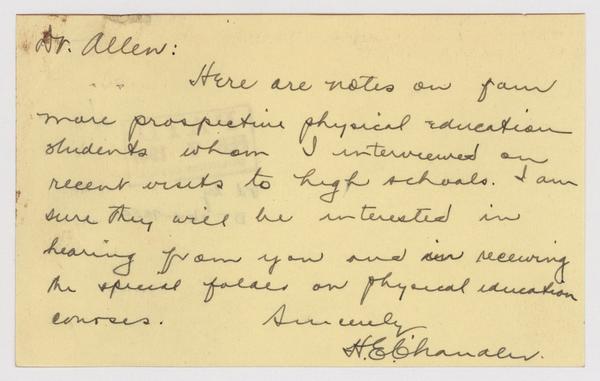 Dr. Allen:
Here are notes on four
more prospective physical education
students whom I interviewed on
recent visits to high schools. I am
sure they will be interested in
hearing from you and in receiving
the special folder on physical education
courses.
Sincerely
H.E. Chandler.